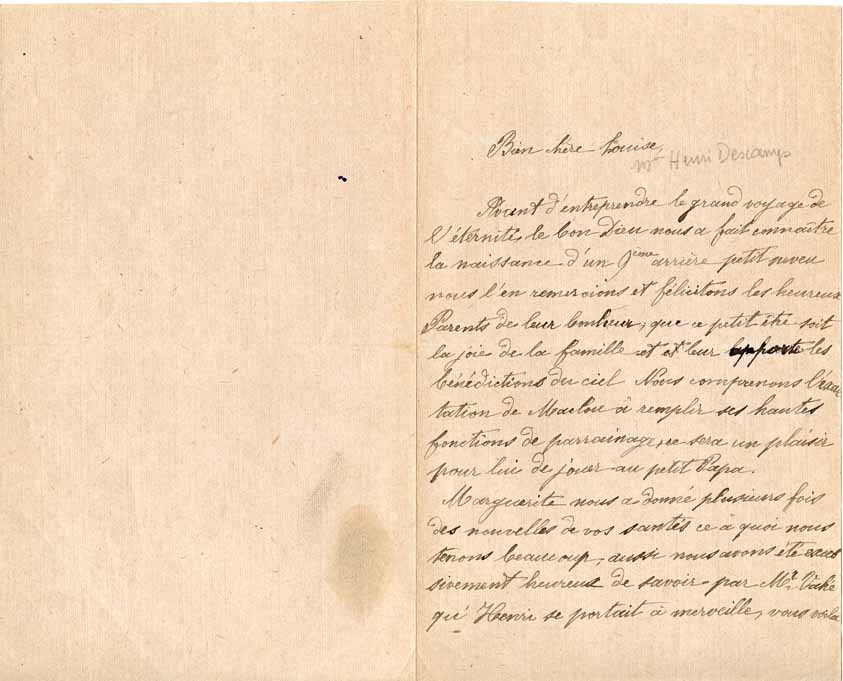 Bien chère Louise,
Mme Henri Descamps
Avant d'entreprendre le grand voyage de
l'éternité, le bon Dieu nous a fait connaître
la naissance d'un 9ème arrière petit neveu
nous l'en remercions et félicitons les heureux
Parents de leur bonheur, que ce petit être soit
la joie de la famille et et leur apporte les
bénédictions du ciel Nous comprenons l'exal
tation de Maclou à remplir ses hautes
fonctions de parrainage, ce sera un plaisir
pour lui de jouer au petit Papa.
Marguerite nous a donné plusieurs fois
des nouvelles de vos santés ce à quoi nous
tenons beaucoup, aussi nous avons été exces
sivement heureux de savoir par Mr.
qu'Henri se portait à merveille, vous voilà